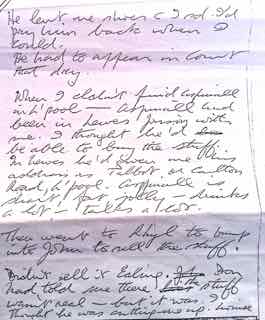 He lent me shoes & I sd. I'd
pay him back when I
could.
He had to appear in Court
that day.
When I didn't find Aspinall
in L'pool — Aspinall had
been in Lewes prison with
me. I thought he'd
be able to buy the stuff.
In Lewes he'd given me his
address as Talbot or Carlton
Road, L'pool. Aspinall is
short, fat, jolly — drinks
a lot — talks a lot.
Then went to Rhyl to bump
into John to sell the stuff.
Didn't sell it Ealing. Don
had told me there the stuff
wasn't real — but it was. I
thought he was